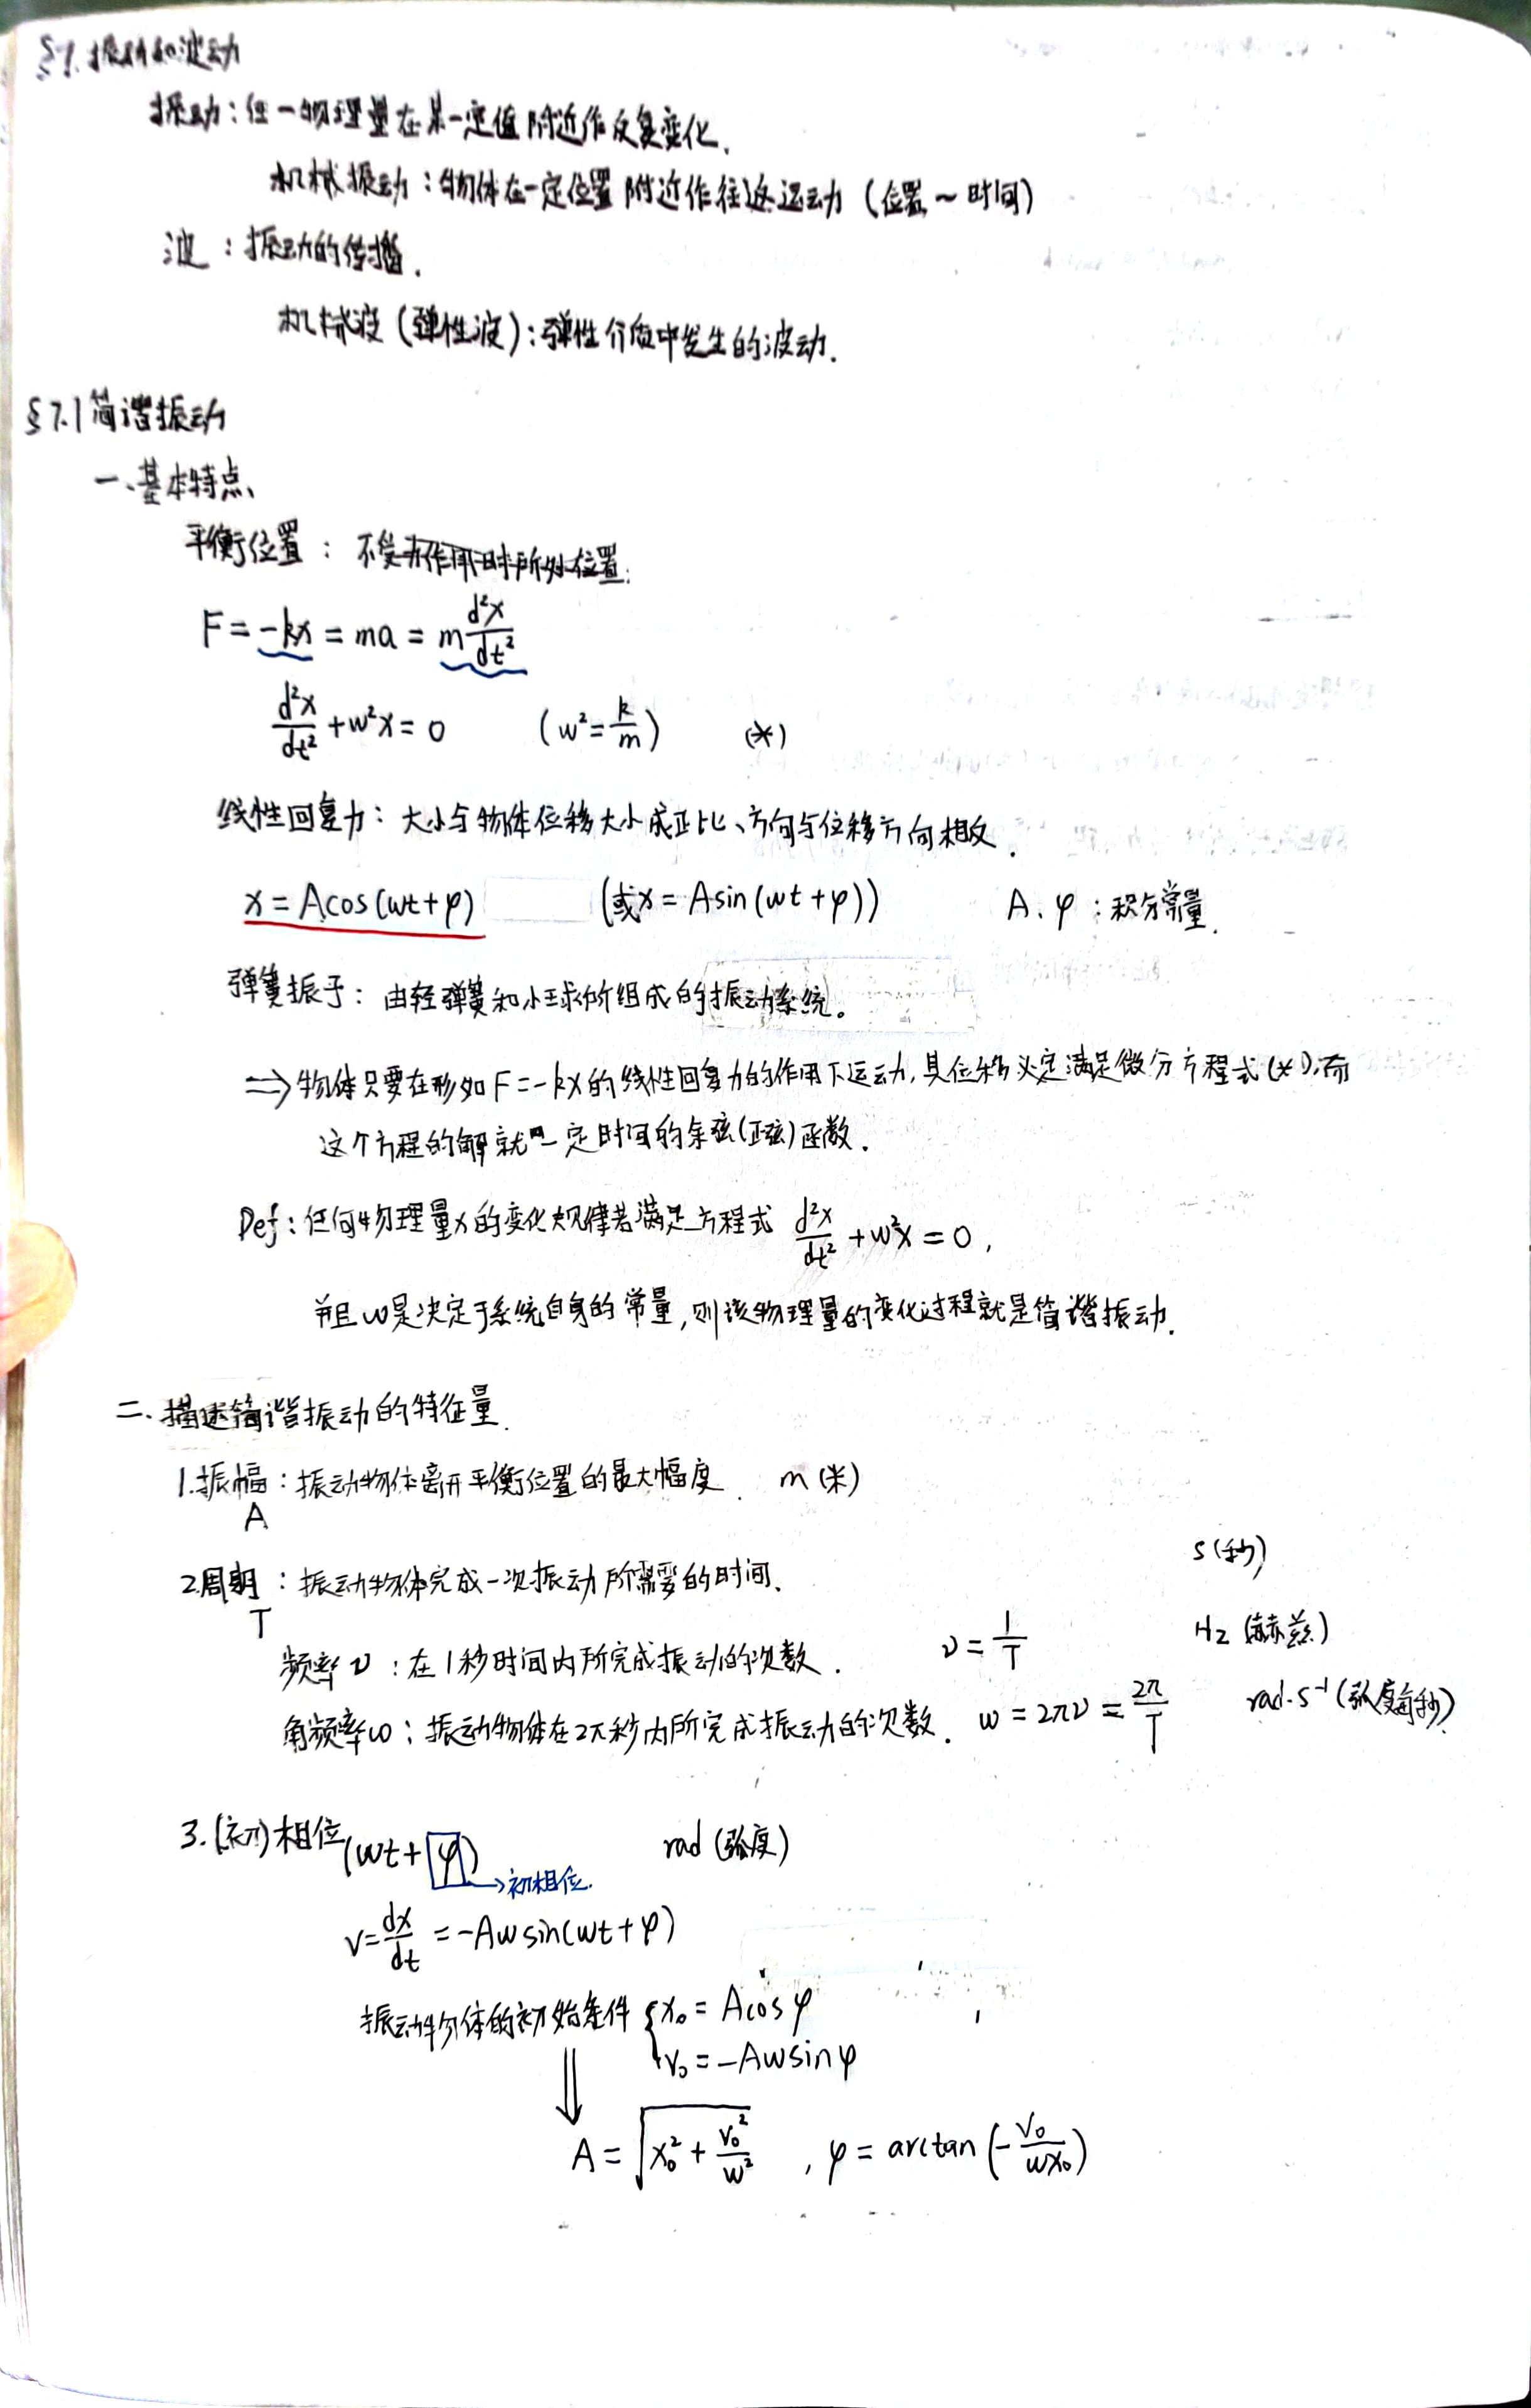 §7.振动和波动
振动：任一物理量在某一定值附近作反复变化.
机械振动：物体在一定位置附近作往返运动（位置～时间）
波：振动的传播.
机械波（弹性波）：弹性介质中发生的波动.
§7.1 简谐振动
一、基本特点、
平衡位置：不受力作用时所处位置.
F = -kx = ma = m d²x/dt²
d²x/dt² + w²x = 0 (w² = k/m) (*)
线性回复力：大小与物体位移大小成正比、方向与位移方向相反.
x = Acos(wt+φ) (或x = Asin(wt+φ)) A、φ：积分常量.
弹簧振子：由轻弹簧和小球所组成的振动系统。
⇒物体只要在形如F=-kx的线性回复力的作用下运动,其位移必定满足微分方程式(*),而
这个方程的解就一定时间的余弦(正弦)函数.
Def：任何物理量x的变化规律若满足方程式 d²x/dt² + w²x = 0,
并且w是决定于系统自身的常量,则该物理量的变化过程就是简谐振动.
二、描述简谐振动的特征量.
1.振幅：振动物体离开平衡位置的最大幅度. m(米)
A
s(秒)
2.周期：振动物体完成一次振动所需要的时间.
T
频率ν：在1秒时间内所完成振动的次数. ν = 1/T Hz(赫兹)
角频率ω：振动物体在2π秒内所完成振动的次数. w = 2πν = 2π/T rad·s⁻¹(弧度每秒)
3.(初)相位(wt+φ) rad(弧度)
→初相位.
v = dx/dt = -Awsin(wt+φ)
振动物体的初始条件 { x₀ = Acosφ
v₀ = -Awsinφ
⇓
A = √(x₀² + v₀²/w²) , φ = arctan(-v₀/wx₀)